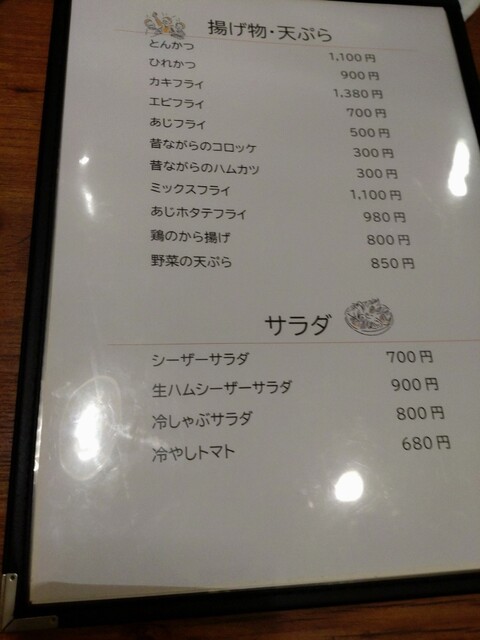 揚げ物・天ぷら
とんかつ 1,100円
ひれかつ 900円
カキフライ 1,380円
エビフライ 700円
あじフライ 500円
昔ながらのコロッケ 300円
昔ながらのハムカツ 300円
ミックスフライ 1,100円
あじホタテフライ 980円
鶏のから揚げ 800円
野菜の天ぷら 850円
サラダ
シーザーサラダ 700円
生ハムシーザーサラダ 900円
冷しゃぶサラダ 800円
冷やしトマト 680円